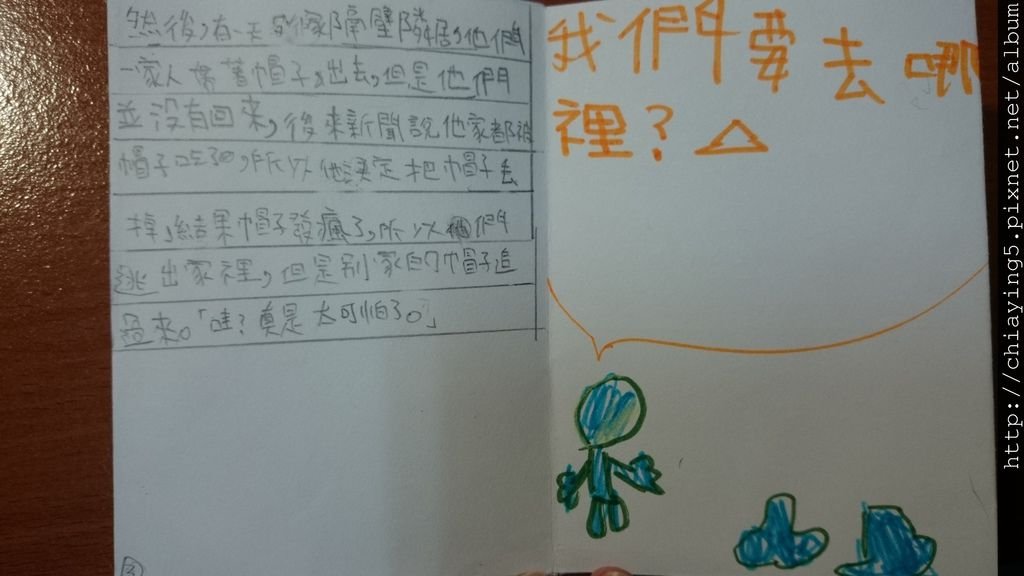 然後,有一天到像隔壁隣居,他們
一家人帶著帽子,出去,但是他們
並沒有回來,後來新聞說他家都被
帽子吃了,所以他決定把帽子丟
掉,結果帽子發瘋了,所以他們
逃出家裡,但是別家的帽子追
過來。「哇?真是太可怕了。」
我們要去哪
裡?
http://chiaying5.pixnet.net/album